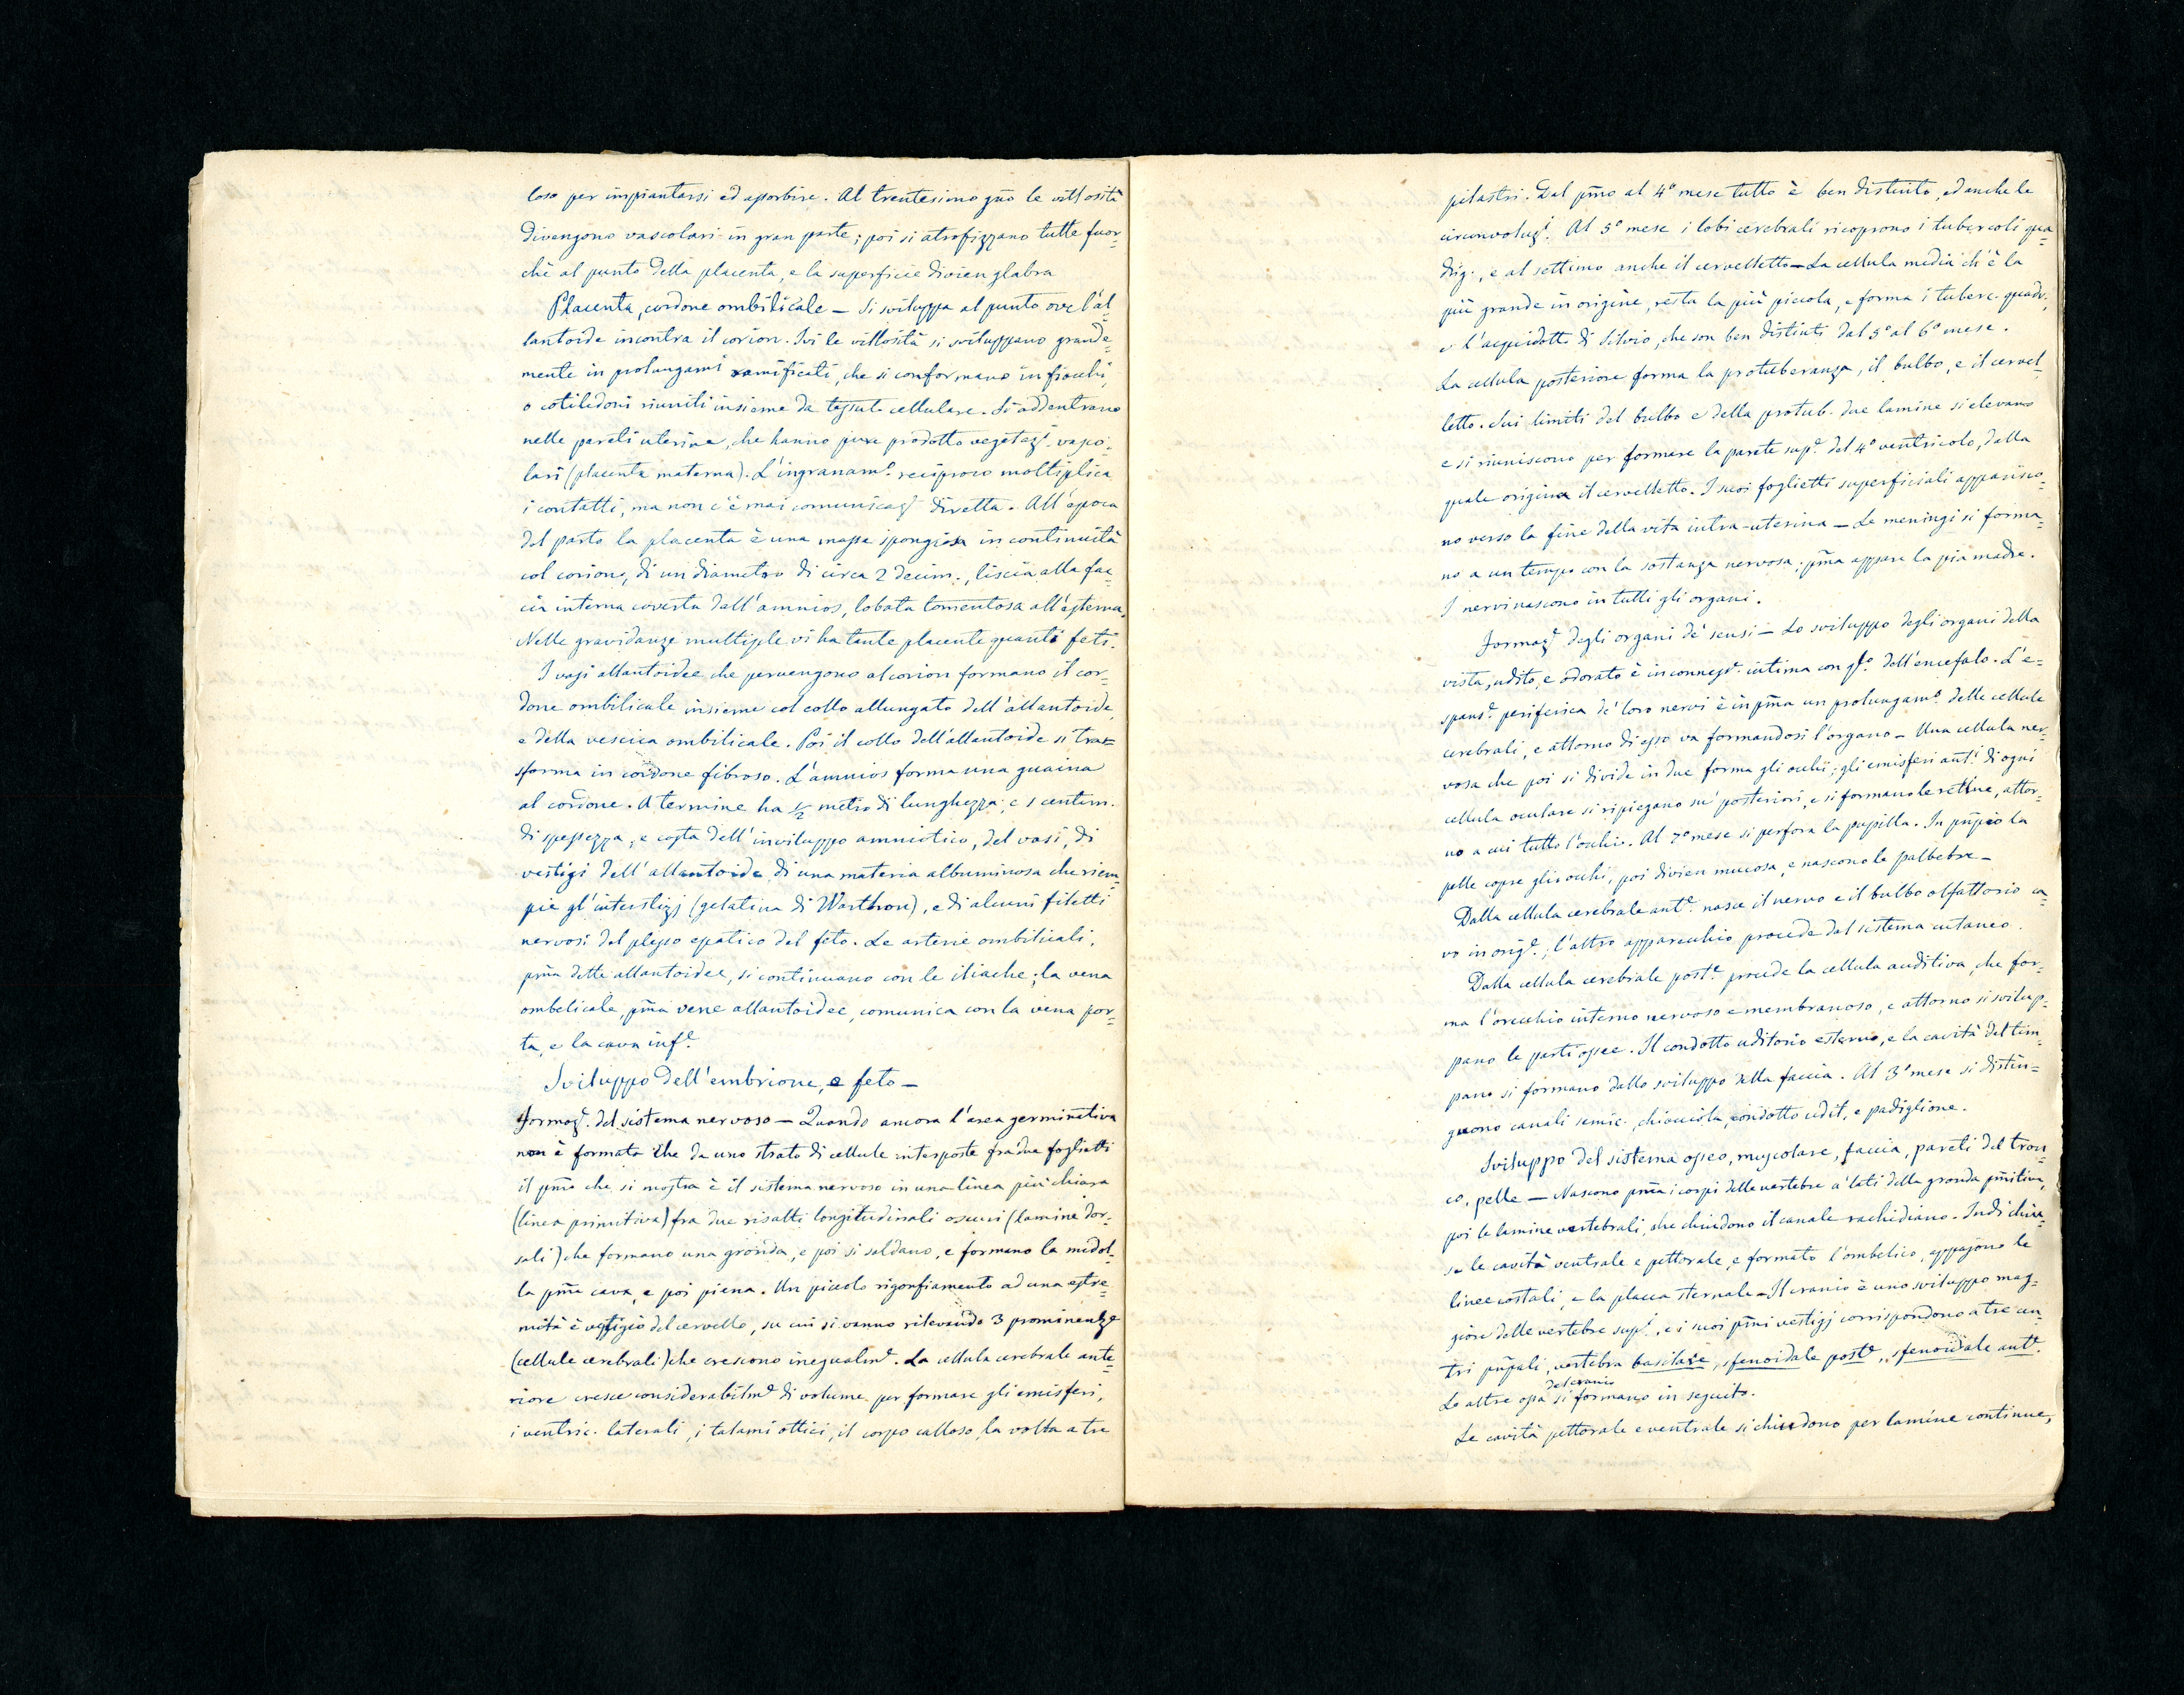 loso per impiantarsi ed assorbire. Al trentesimo gno le villosità
divengono vascolari in gran parte; poi si atrofizzano tutte fuor-
chè al punto della placenta, e la superficie divien glabra
Placenta, cordone ombilicale — Si sviluppa al punto ove l'al-
lantoide incontra il corion. Ivi le villosità si sviluppano grande-
mente in prolungami ramificati, che si conformano in fiocchi,
o cotiledoni riuniti insieme da tessut. cellulare. Si addentrano
nelle pareti uterine, che hanno pure prodotto vegetazi. vasco-
lari (placenta materna). L'ingranamo. reciproco moltiplica
i contatti, ma non c'è mai comunicaze. diretta. All'epoca
del parto la placenta è una massa spongiosa in continuità
col corion, di un diametro di circa 2 decim., liscia alla fac-
cia interna coverta dall'amnios, lobata tomentosa all'esterna.
Nelle gravidanze multiple vi ha tante placente quanti feti.
I vasi allantoidee che pervengono al corion formano il cor-
done ombilicale insieme col collo allungato dell'allantoide,
e della vescica ombilicale. Poi il collo dell'allantoide si tras=
sforma in cordone fibroso. L'amnios forma una guaina
al cordone. A termine ha ½ metro di lunghezza, e 1 centim.
di spessezza, e costa dell'inviluppo amniotico, del vasi, di
vestigi dell'allantoide, di una materia albuminosa che riem-
pie gl'interstizj (gelatina di Warthon), e di alcuni filetti
nervosi del plesso epatico del feto. Le arterie ombilicali,
pma dette allantoidee, si continuano con le iliache; la vena
ombelicale, pma vene allantoidee, comunica con la vena por-
ta, e la cava infe.
Sviluppo dell'embrione, e feto —
Formaze. del sistema nervoso — Quando ancora l'area germinativa
non è formata che da uno strato di cellule interposte fra due foglietti
il pmo che si mostra è il sistema nervoso in una linea più chiara
(linea primitiva) fra due risalti longitudinali oscuri (lamine dor-
sali) che formano una gronda, e poi si saldano, e formano la midol-
la pma cava, e poi piena. Un piccolo rigonfiamento ad una estre-
mità è vestigio del cervello, su cui si vanno rilevando 3 prominenze
(cellule cerebrali) che crescono inegualme. La cellula cerebrale ante-
riore cresce considerabilme di volume per formare gli emisferi,
i ventric. laterali, i talami ottici, il corpo calloso, la volta a tre
pilastri. Dal pmo al 4º mese tutto è ben distinto, ed anche le
circonvoluzi. Al 5º mese i lobi cerebrali ricoprono i tubercoli qua-
drig., e al settimo anche il cervelletto — La cellula media ch'è la
più grande in origine, resta la più piccola, e forma i tuberc. quadr.,
e l'acquidotto di Silvio, che son ben distinti dal 5º al 6º mese.
La cellula posteriore forma la protuberanza, il bulbo, e il cervel-
letto. Sui limiti del bulbo e della protub. due lamine si elevano
e si riuniscono per formare la parete supe. del 4º ventricolo, dalla
quale origina il cervelletto. I suoi foglietti superficiali apparisco-
no verso la fine della vita intra-uterina — Le meningi si forma-
no a un tempo con la sostanza nervosa; pma appare la pia madre.
I nervi nascono in tutti gli organi.
Formaze. degli organi de' sensi — Lo sviluppo degli organi della
vista, udito, e odorato è in connesse. intima con qlo. dell'encefalo. L'e=
spanse. periferica de' loro nervi è in pma un prolungamo. delle cellule
cerebrali, e attorno di esso va formandosi l'organo — Una cellula ner-
vosa che poi si divide in due forma gli occhi; gli emisferi anti. di ogni
cellula oculare si ripiegano su' posteriori, e si formano le retine, attor-
no a cui tutto l'occhio. Al 7º mese si perfora la pupilla. In pnpio la
pelle copre gli occhi, poi divien mucosa, e nascono le palbebre —
Dalla cellula cerebrale ante. nasce il nervo e il bulbo olfattorio ca-
vo in orige.; l'altro apparecchio procede dal sistema cutaneo.
Dalla cellula cerebrale poste. procede la cellula auditiva, che for-
ma l'orecchio interno nervoso e membranoso, e attorno si svilup-
pano le parti ossee. Il condotto uditorio esterno, e la cavità del tim-
pano si formano dallo sviluppo della faccia. Al 3º mese si distin=
guono canali semic., chiocciola, condotto udit., e padiglione.
Sviluppo del sistema osseo, muscolare, faccia, pareti del tron-
co, pelle — Nascono pma i corpi delle vertebre a' lati della gronda pmitiva,
poi le lamine vertebrali, che chiudono il canale rachidiano. Indi chiu-
se le cavità ventrale e pettorale, e formato l'ombelico, appajono le
linee costali, e la placca sternale — Il cranio è uno sviluppo mag-
giore delle vertebre supi., e i suoi pmi vestigj corrispondono a tre cen-
tri pnpali, vertebra basilare, sfenoidale poste., sfenoidale ante.
Le altre ossa del cranio si formano in seguito.
Le cavità pettorale e ventrale si chiudono per lamine continue,